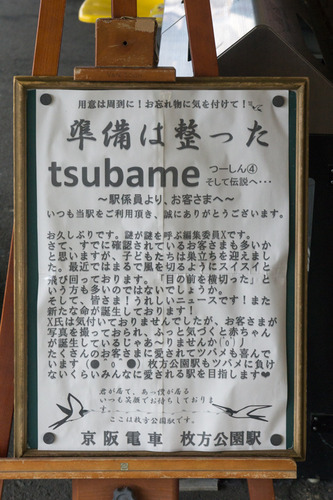 用意は周到に！お忘れ物に気を付けて！
準備は整った
tsubame つーしん④
そして伝説へ…
～駅係員より、お客さまへ～
いつも当駅をご利用頂き、誠にありがとうございます。
お久しぶりです。謎が謎を呼ぶ編集委員Xです。
さて、すでに確認されているお客さまも多いか
と思いますが、子どもたちは巣立ちを迎えまし
た。最近ではまるで風を切るようにスイスイと
飛び回っております。「目の前を横切った」と
いう方も多いのではないでしょうか。
そして、皆さま！うれしいニュースです！また
新たな命が誕生しております！
X氏は気付いておりませんでしたが、お客さまが
写真を撮っておられ、ふっと気づくと赤ちゃん
が誕生しているじゃあ～りませんか（゜o゜）ノ
たくさんのお客さまに愛されてツバメも喜んで
います（●＾o＾●）枚方公園駅もツバメに負け
ないくらいみんなに愛される駅を目指します❤
君が居て、あっ僕が居る
いつも笑顔でお待ちしております。
ここは枚方公園駅です。
京阪電車 枚方公園駅